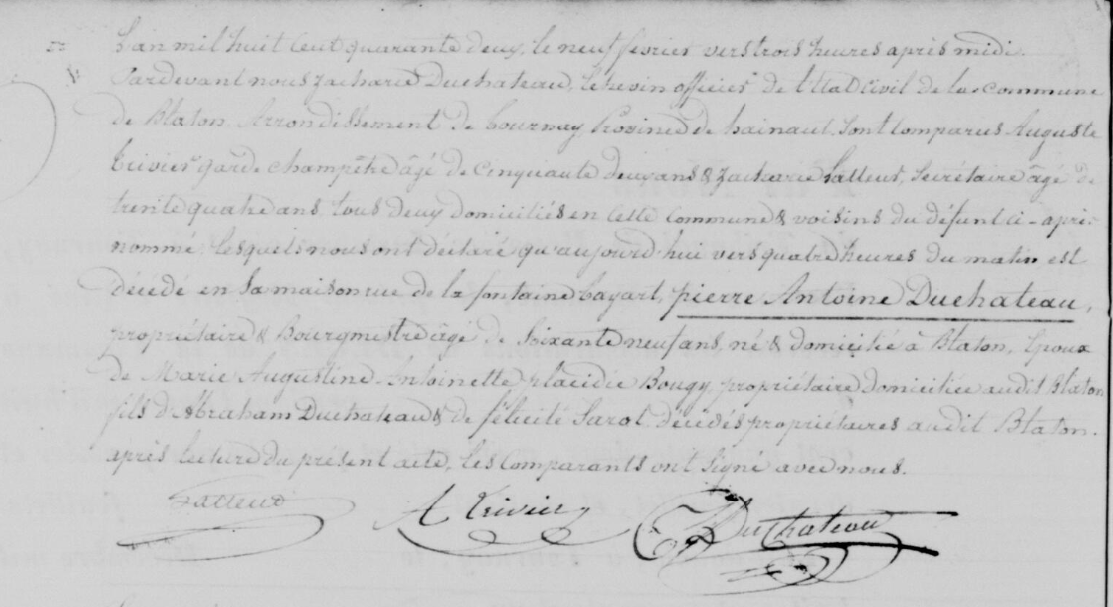 L'an mil huit cent quarante deux, le neuf fevrier vers trois heures apres midi.
Pardevant nous Zacharie Duchateau, Echevin officier de l'Etat Civil de la commune
de Blaton Arrondissement de Tournay Province de hainaut, sont comparus Auguste
Trivier garde champêtre âgé de cinquante deux ans & Zacharie Satteut, Secrétaire âgé de
trente quatre ans, tous deux domiciliés en cette commune & voisins du défunt ci-après
nommé, lesquels nous ont déclaré qu'aujourd'hui vers quatre heures du matin est
décédé en sa maison rue de la fontaine bayart, pierre Antoine Duchateau,
propriétaire & Bourgmestre âgé de Soixante neuf ans, né & domicilié à Blaton, Epoux
de Marie Augustine Antoinette placidie Bougy propriétaire domiciliée audit Blaton
fils d'Abraham Duchateau & de félicité Sarot décédés propriétaires audit Blaton.
après lecture du présent acte, les Comparants ont signé avec nous.
Satteut A Trivier Z Duchateau